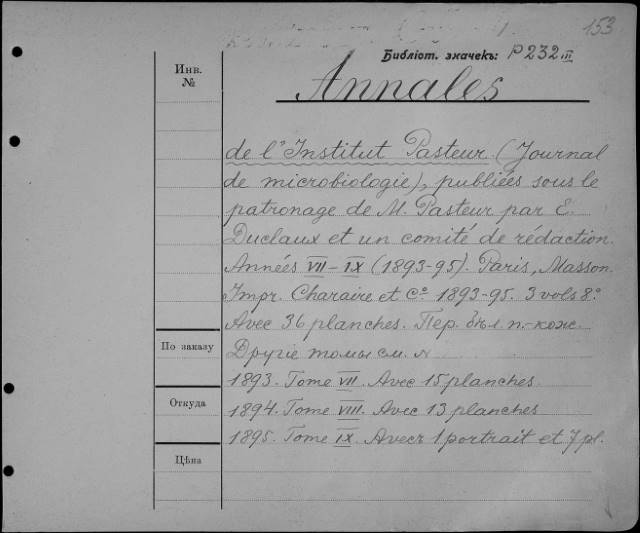 153
Библіот. значекъ: P 232 III
Инв. №
Annales
de l'Institut Pasteur (Journal
de microbiologie), publiées sous le
patronage de M. Pasteur par E.
Duclaux et un comité de rédaction.
Années VII–IX (1893-95). Paris, Masson.
Impr. Charaire et Cᵉ 1893-95. 3 vols 8.º
Avec 36 planches. Пер. бѣл. п.-кож.
По заказу
Другіе томы см. N
1893. Tome VII. Avec 15 planches
Откуда
1894. Tome VIII. Avec 13 planches
1895. Tome IX. Avec 1 portrait et 7 pl.
Цѣна